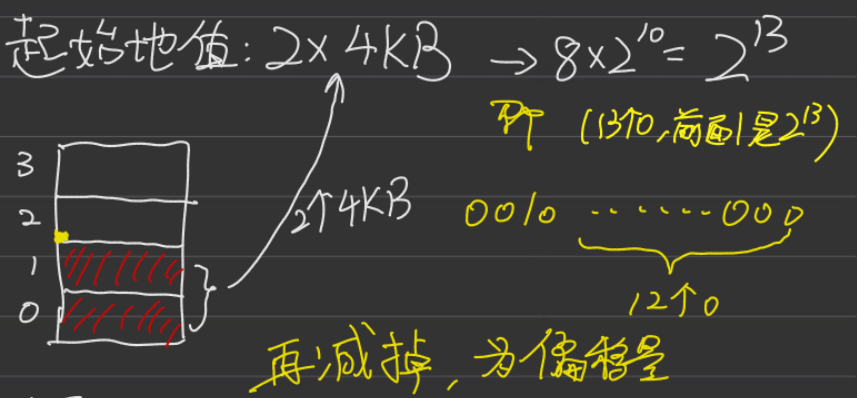 起始地值: 2×4KB → 8×2¹⁰= 2¹³
即 (13个0,前面1是2¹³)
3
2
2个4KB
0010 ·······000
1
0
12个0
再减掉, 为偏移量